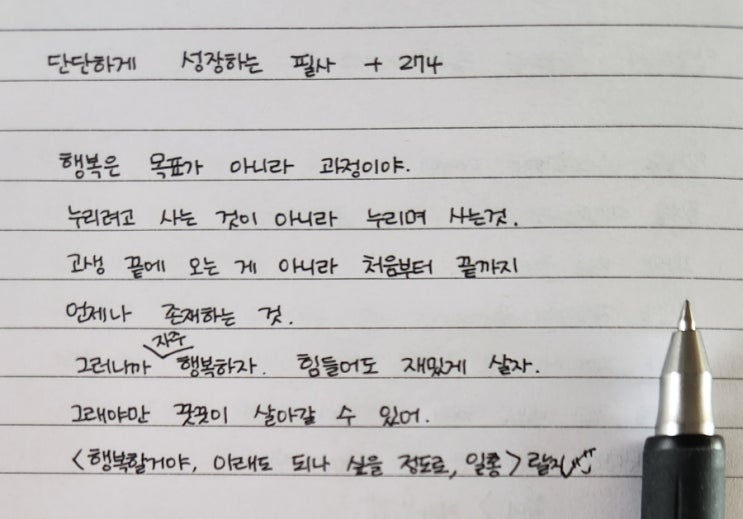 단단하게 성장하는 필사 + 274
행복은 목표가 아니라 과정이야.
누리려고 사는 것이 아니라 누리며 사는것.
고생 끝에 오는 게 아니라 처음부터 끝까지
언제나 존재하는 것.
자주
그러니까 행복하자. 힘들어도 재밌게 살자.
그래야만 꿋꿋이 살아갈 수 있어.
<행복할거야, 이래도 되나 싶을 정도로, 일홍>